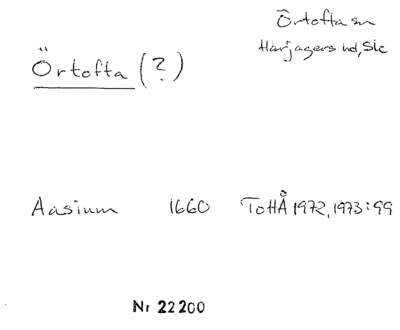 Örtofta sn
Harjagers hd, Sk
Örtofta (?)
Aasium 1660 ToHÅ 1972, 1973:99
Nr 22200